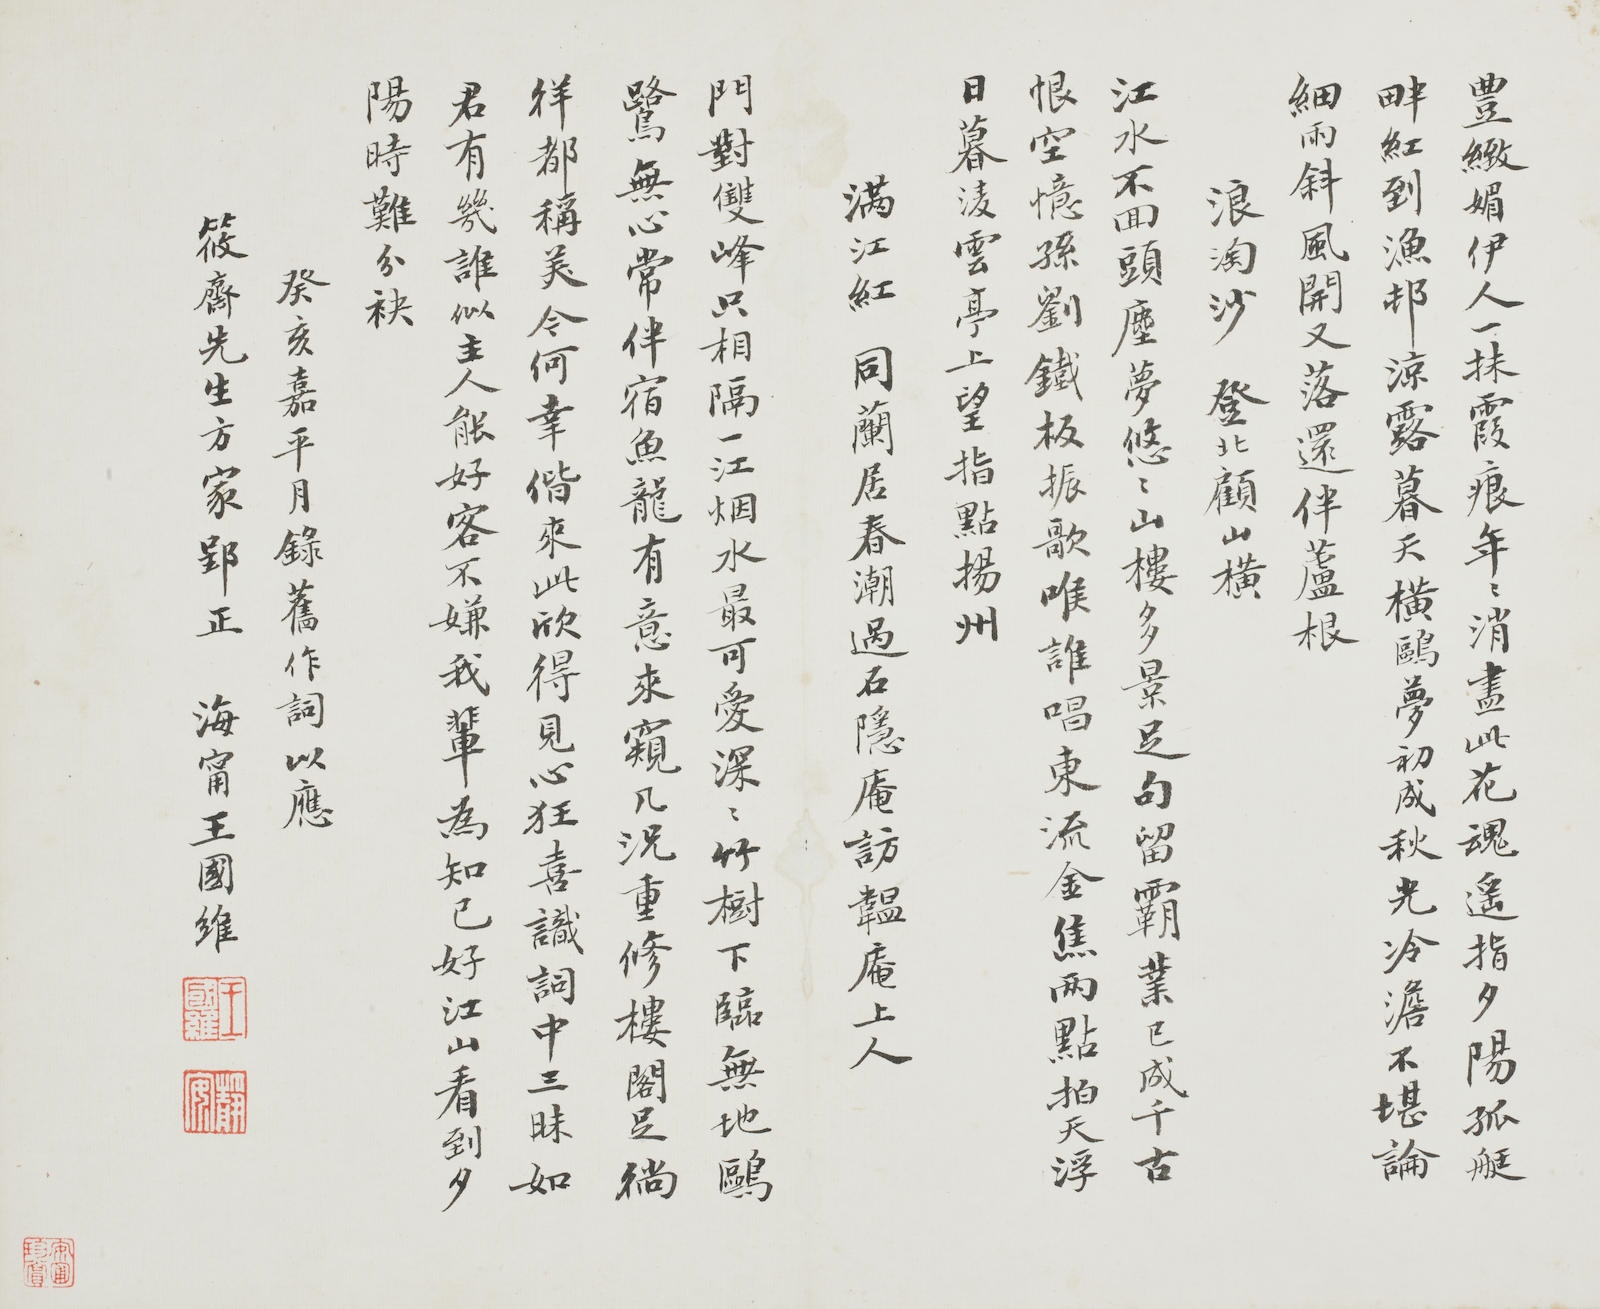 豊緻媚伊人一抹霞痕年〻消盡此花魂遥指夕陽孤艇
畔紅到漁邨涼露暮天橫鷗夢初成秋光冷澹不堪論
細雨斜風開又落還伴蘆根
浪淘沙 登北顧山橫
江水不囬頭塵夢悠〻山樓多景足句留霸業已成千古
恨空憶孫劉鐵板振歌喉誰唱東流金焦兩點拍天浮
日暮淩雲亭上望指點揚州
滿江紅 同蘭居春潮過石隱庵訪韞庵上人
門對雙峰只相隔一江烟水最可愛深〻竹樹下臨無地鷗
鷺無心常伴宿魚龍有意來窺几況重修樓閣足徜
徉都稱美今何幸偕來此欣得見心狂喜識詞中三昧如
君有幾誰似主人能好客不嫌我輩為知己好江山看到夕
陽時難分袂
癸亥嘉平月錄舊作詞以應
筱齋先生方家郢正 海甯王國維
王國維
靜安